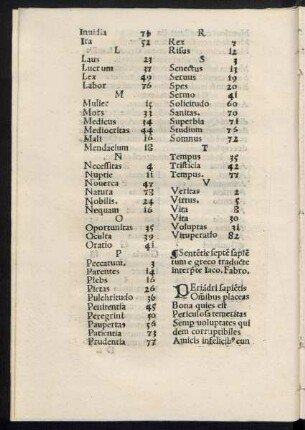 Inuidia 71
Ira 52
L
Laus 23
Luctus 37
Lex 49
Labor 76
M
Mulier 15
Mors 33
Medicus 14
Mediocritas 44
Mali 16
Mendacium 18
N
Necessitas 4
Nuptie 11
Nouerca 47
Natura 73
Nobilis. 24
Nequam 16
O
Oportunitas 35
Oculta 39
Oratio 41
P
Peccatum. 3
Parentes 14
Plebs 16
Pietas 26
Pulchritudo 36
Penitentia 45
Peregrini 50
Paupertas 56
Patientia 73
Prudentia 77
R
Rex 7
Risus 12
S
Senectus 13
Seruus 19
Spes 20
Sermo 41
Solicitudo 60
Sanitas. 70
Superbia 71
Studium 76
Somnus 72
T
Tempus 35
Tristicia 42
Tempus. 77
V
Veritas 2
Virtus. 5
Vita 8
Vita 30
Voluptas 31
Vituperatio 82
¶ Sententie septē sapiē
tum e greco traducte
interpōr Iaco. Fabro.
PEriādri sapiētis
Omībus placeas
Bona quies est
Periculosa temeritas
Semp voluptates qui
dem corruptibiles
Amicis infelicibꝰ eun